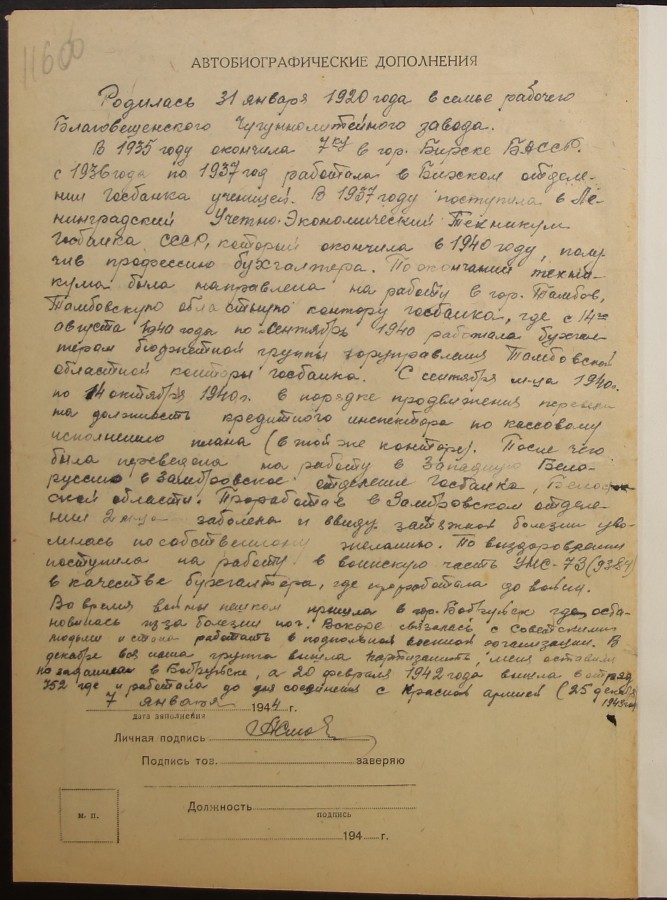 11600
АВТОБИОГРАФИЧЕСКИЕ ДОПОЛНЕНИЯ
Родилась 31 января 1920 года в семье рабочего
Благовещенского Чугуннолитейного завода.
В 1935 году окончила 7кл в гор. Бирске БАССР.
с 1936 года по 1937 год работала в Бирском отделе-
нии госбанка ученицей. В 1937 году поступила в Ле-
нинградский Учетно-Экономический Техникум
госбанка СССР, который окончила в 1940 году, полу-
чив профессию бухгалтера. По окончании техни-
кума была направлена на работу в гор. Тамбов,
Тамбовскую областную контору госбанка, где с 14го
августа 1940 года по сентябрь 1940 работала бухгал-
тером бюджетной группы горуправления Тамбовской
областной конторы госбанка. С сентября м-ца 1940г.
по 14 октября 1940г. в порядке продвижения
на должность кредитного инспектора по кассовому
исполнению плана (в той же конторе). После чего
была переведена на работу в Западную Бело-
руссию в Замбровское отделение госбанка, Белосток-
ской области. Проработав в Замбровском отделе-
нии 2 м-ца заболела и ввиду затяжной болезни уво-
лилась по собственному желанию. По выздоровлении
поступила на работу в воинскую часть УНС-73 (9384)
в качестве бухгалтера, где проработала до войны.
Во время войны пешком пришла в гор. Бобруйск где оста-
новилась из за болезни ног. Вскоре связалась с советскими
людьми и стала работать в подпольной военной организации. В
декабре вся наша группа вышла партизанить, меня оставили
по заданию в Бобруйске, а 20 февраля 1942 года вышла в отряд
752 где и работала до дня соединения с Красной армией (25 декабря
1943 года)
7 января 1944 г.
дата заполнения
Личная подпись
Подпись тов. заверяю
Должность
подпись
м. п.
194 г.